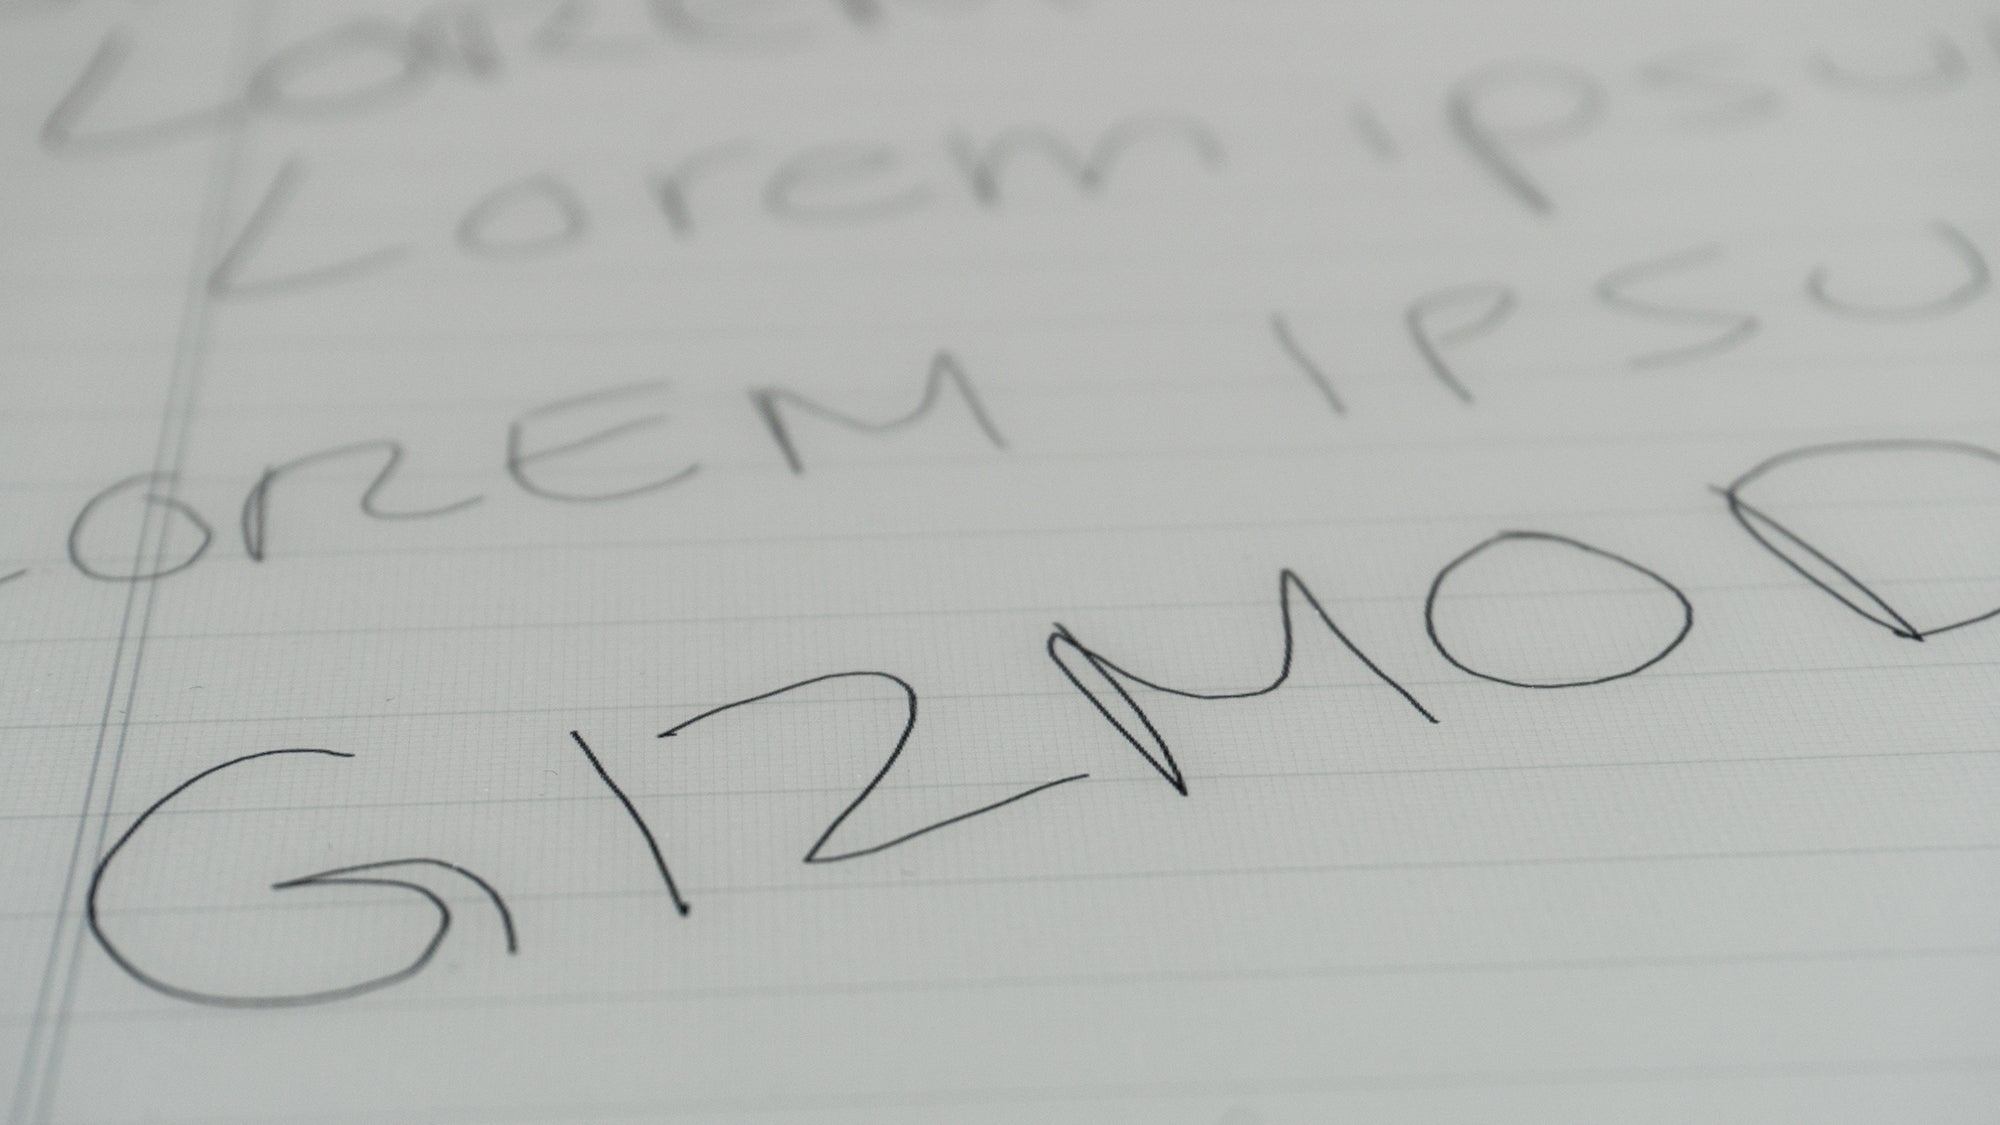 LOREM
Lorem ipsu
LOREM IPSU
GIZMOD